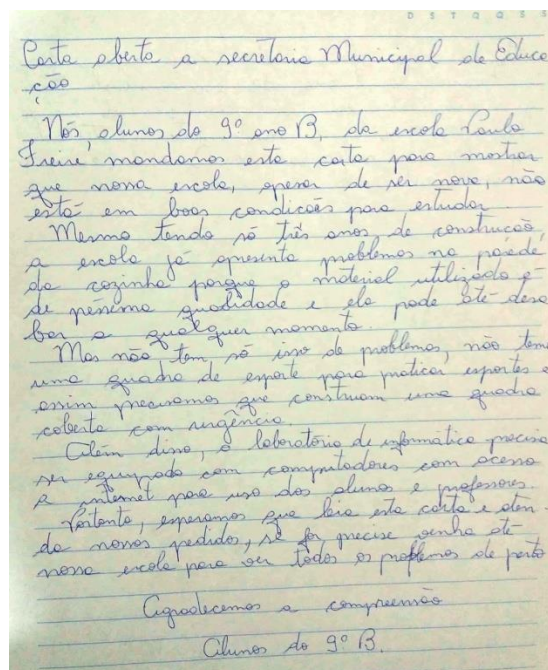 D S T Q Q S S
Carta aberta a secretaria Municipal de Educa
ção
Nós, alunos do 9º ano B, da escola Paulo
Freire mandamos esta carta para mostrar
que nossa escola, apesar de ser nova, não
está em boas condicões para estudar
Mesmo tendo só três anos de construcão,
a escola já apresenta problemas na parede
da cozinha porque o material utilizado é
de péssima qualidade e ela pode até desa
bar a qualquer momento.
Mas não tem só isso de problemas, não tem
uma quadra de esporte para praticar esportes e
assim precisamos que construam uma quadra
coberta com urgência.
Além disso, o laboratório de informática precisa
ser equipado com computadores com acesso
a internet para uso dos alunos e professores.
Portanto, esperamos que leia esta carta e aten
da nossos pedidos, se for precise venha até
nossa escola para ver todos os problemas de perto
Agradecemos a compreensão
Alunos do 9º B.